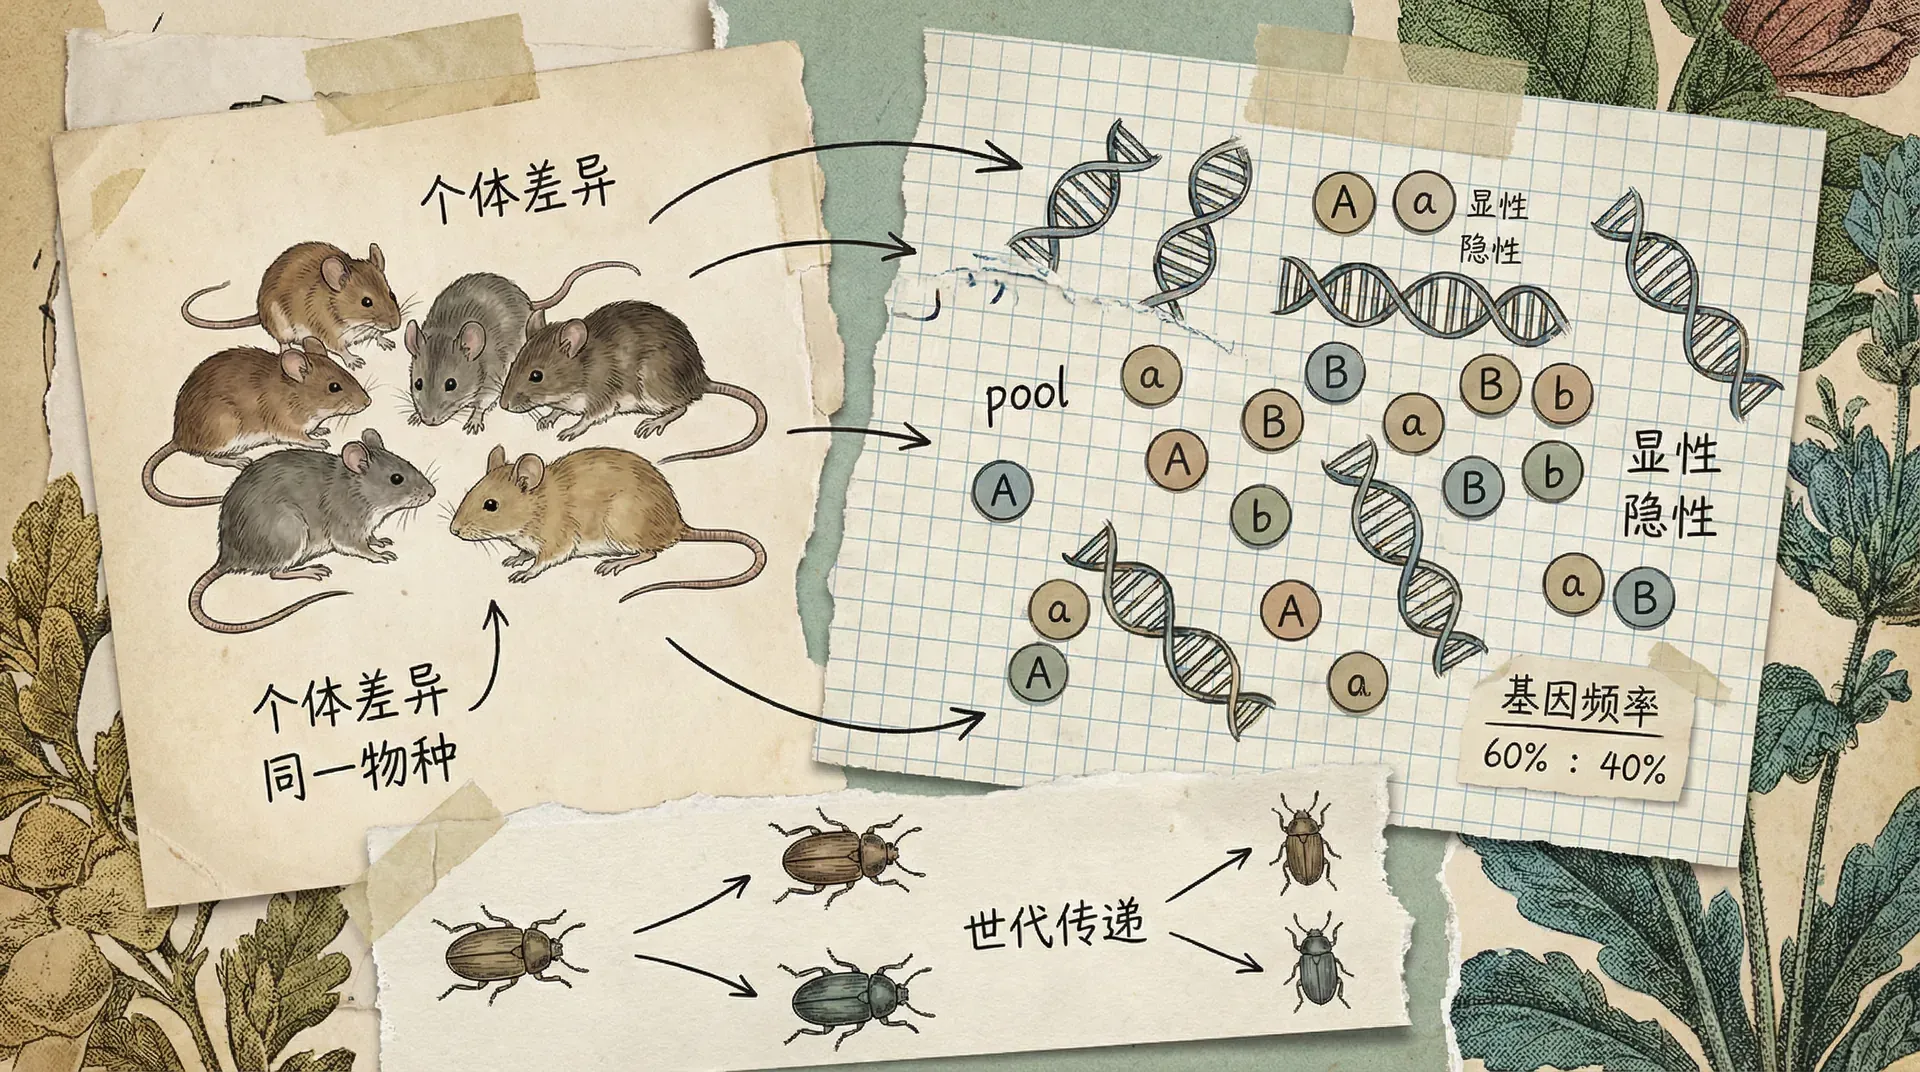 个体差异
个体差异
同一物种
A a 显性
隐性
pool
a
B
B
b
B
a
A
A
B
b
b
显性
隐性
a
A
a
B
A
a
基因频率
60% : 40%
世代传递